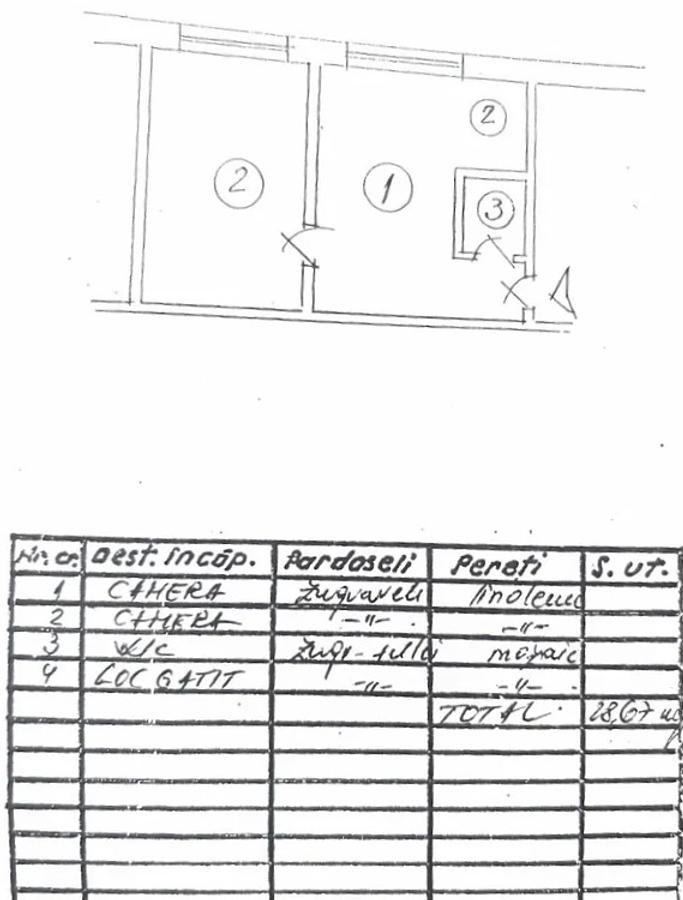 2
2
1
3
Nr. cr. Dest. încăp. Pardoseli Pereți S. ut.
1 CAMERA zugraveli linoleu
2 CAMERA -"- -"-
3 W/C mozaic
4 LOC GATIT -"- -"-
TOTAL 28,67